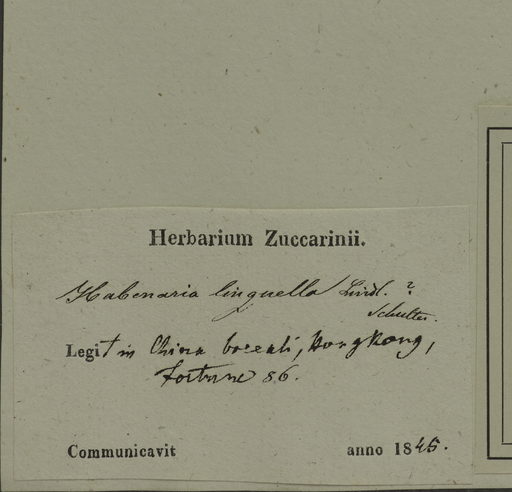 Herbarium Zuccarinii.
Habenaria linguella Lindl. ?
Schulter.
Legit in China boreali, Hongkong,
Fortune 86.
Communicavit anno 1845.